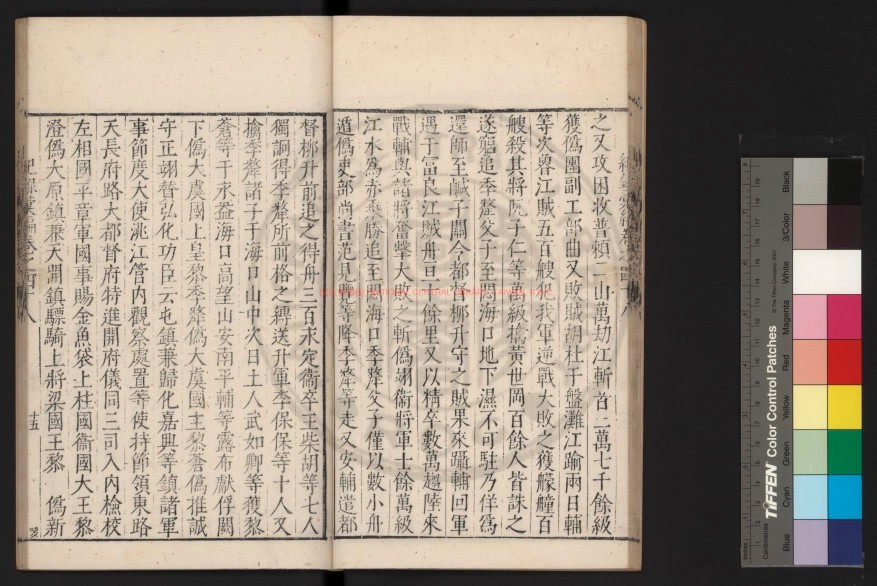 之又攻困收普賴二山萬劫江斬首二萬七千餘級
獲僞團副工部曲又敗賊胡杜于盤灘江踰兩日輔
等次魯江賊五百艘犯我軍逆戰大敗之獲艨艟百
艘殺其將阮子仁等萬級擒黃世岡百餘人皆誅之
遂窮追季犛父子至悶海口地下濕不可駐乃佯爲
還師至鹹子關今都督柳升守之賊果來躡輔回軍
遇于富良江賊舟亘十餘里又以精卒數萬趨陸來
戰輔與諸將奮擊大敗之斬僞翊衞將軍士餘萬級
江水爲赤乘勝追至悶海口季犛父子僅以數小舟
遁僞吏部尚書范見覽等降季犛等走又安輔遣都
督柳升前追之得舟三百永定衞卒王柴胡等七人
獨詗得李犛所前格之縛送升軍李保保等十人又
擒季犛諸子于海口山中次日土人武如卿等獲黎
蒼等于永盎海口高望山安南平輔等露布獻俘闕
下僞大虞國上皇黎季犛僞大虞國主黎蒼僞推誠
守正翊贊弘化功臣云屯鎮兼歸化嘉興等鎮諸軍
事節度大使洮江管內觀察處置等使持節領東路
天長府路大都督府特進開府儀同三司入內檢校
左相國平章軍國事賜金魚袋上柱國衞國大王黎
澄僞大原鎮兼天關鎮驃騎上將梁國王黎 僞新